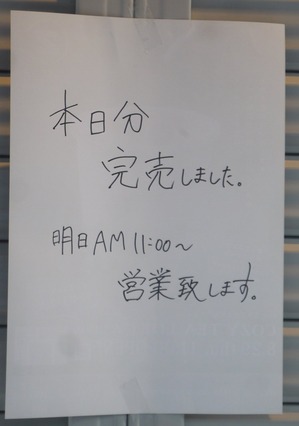 本日分
完売しました。
明日AM11:00～
営業致します。